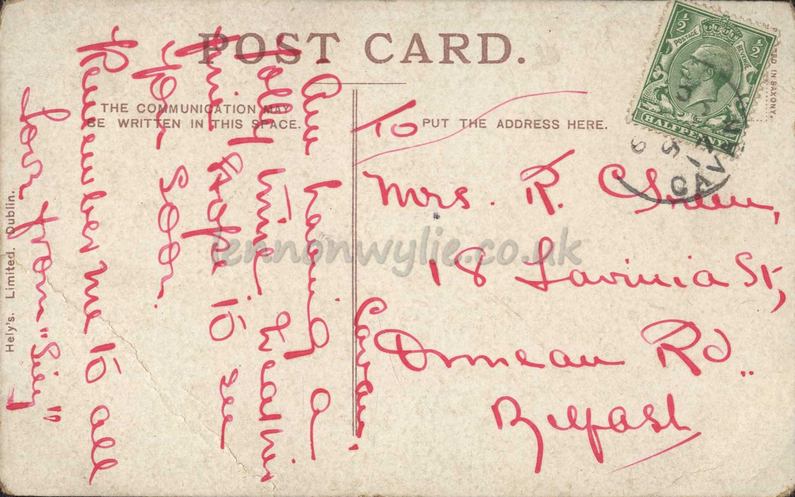 POST CARD.
THE COMMUNICATION MAY
BE WRITTEN IN THIS SPACE.
PUT THE ADDRESS HERE.
Hely's. Limited. Dublin.
½ ½
POSTAGE REVENUE
HALFPENNY
ED IN SAXONY.
CAVAN
Cavan
Am having a
jolly time weather
fine hope to see
you soon.
Remember me to all
love from "Lily"
To
Mrs. R.
18 Lavinia St,
Ormeau Rd..
Belfast
lennonwylie.co.uk